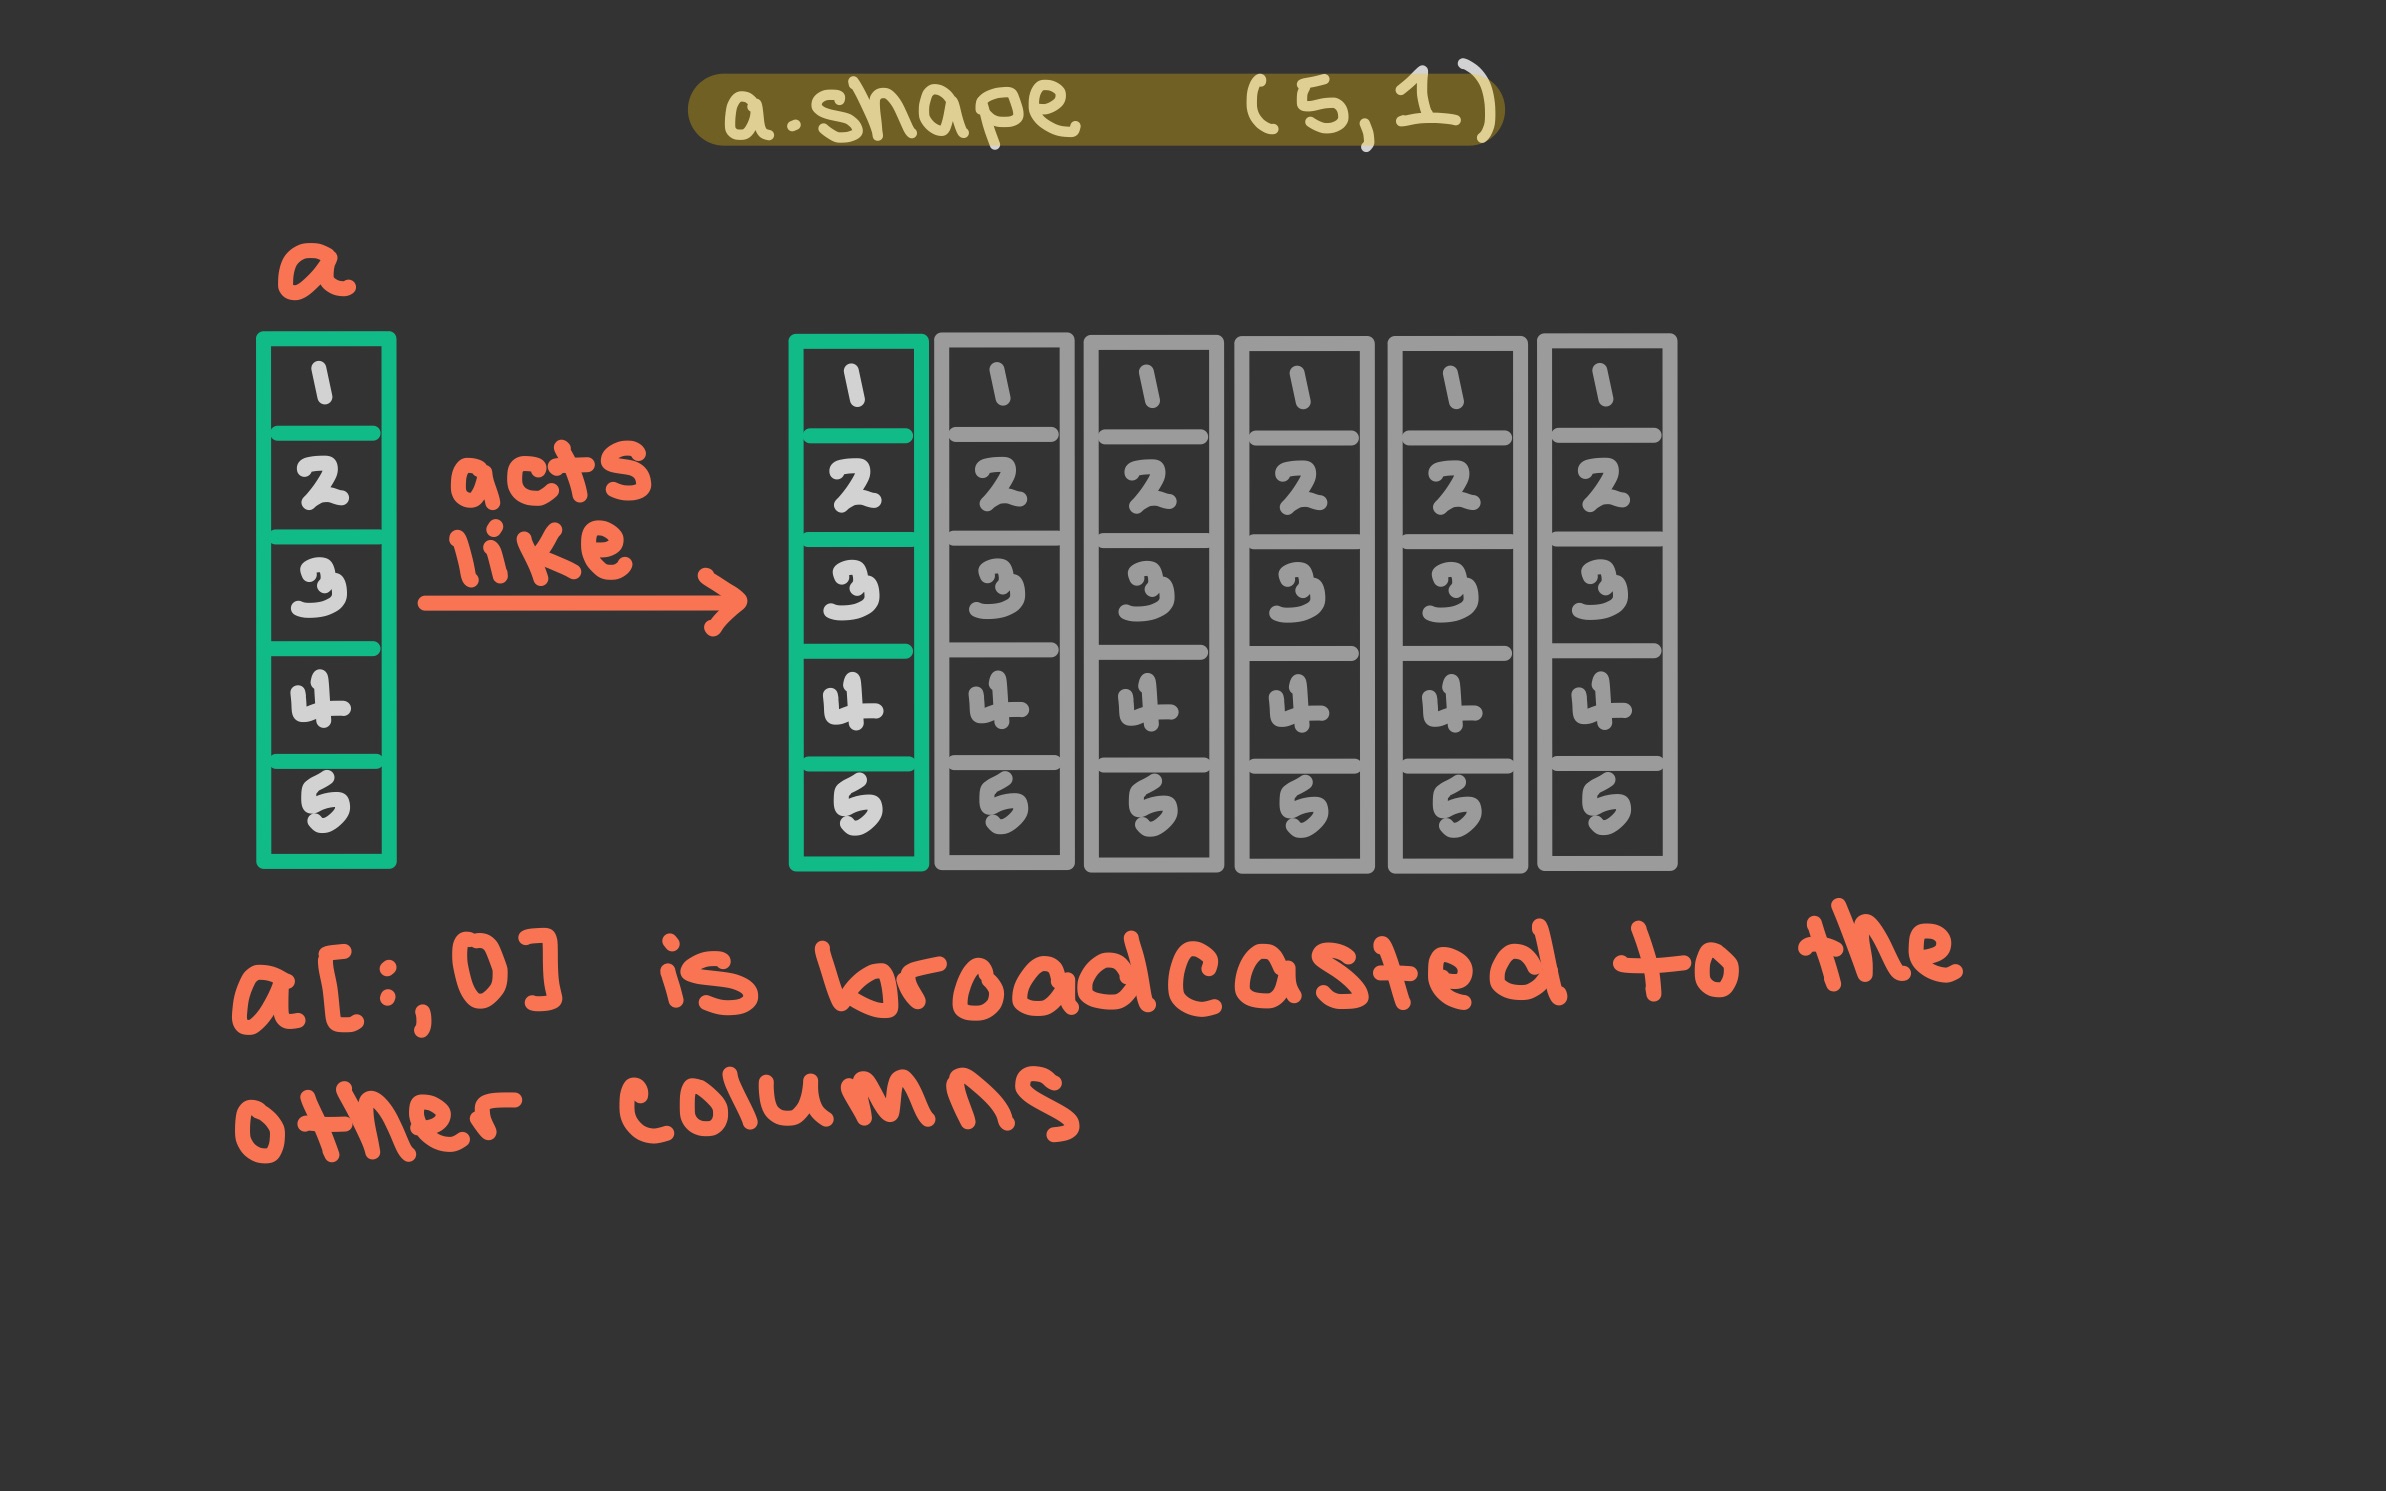 a.shape (5,1)
a
acts
like
1 1 1 1 1 1 1
2 2 2 2 2 2 2
3 3 3 3 3 3 3
4 4 4 4 4 4 4
5 5 5 5 5 5 5
a[:,0] is broadcasted to the
other columns